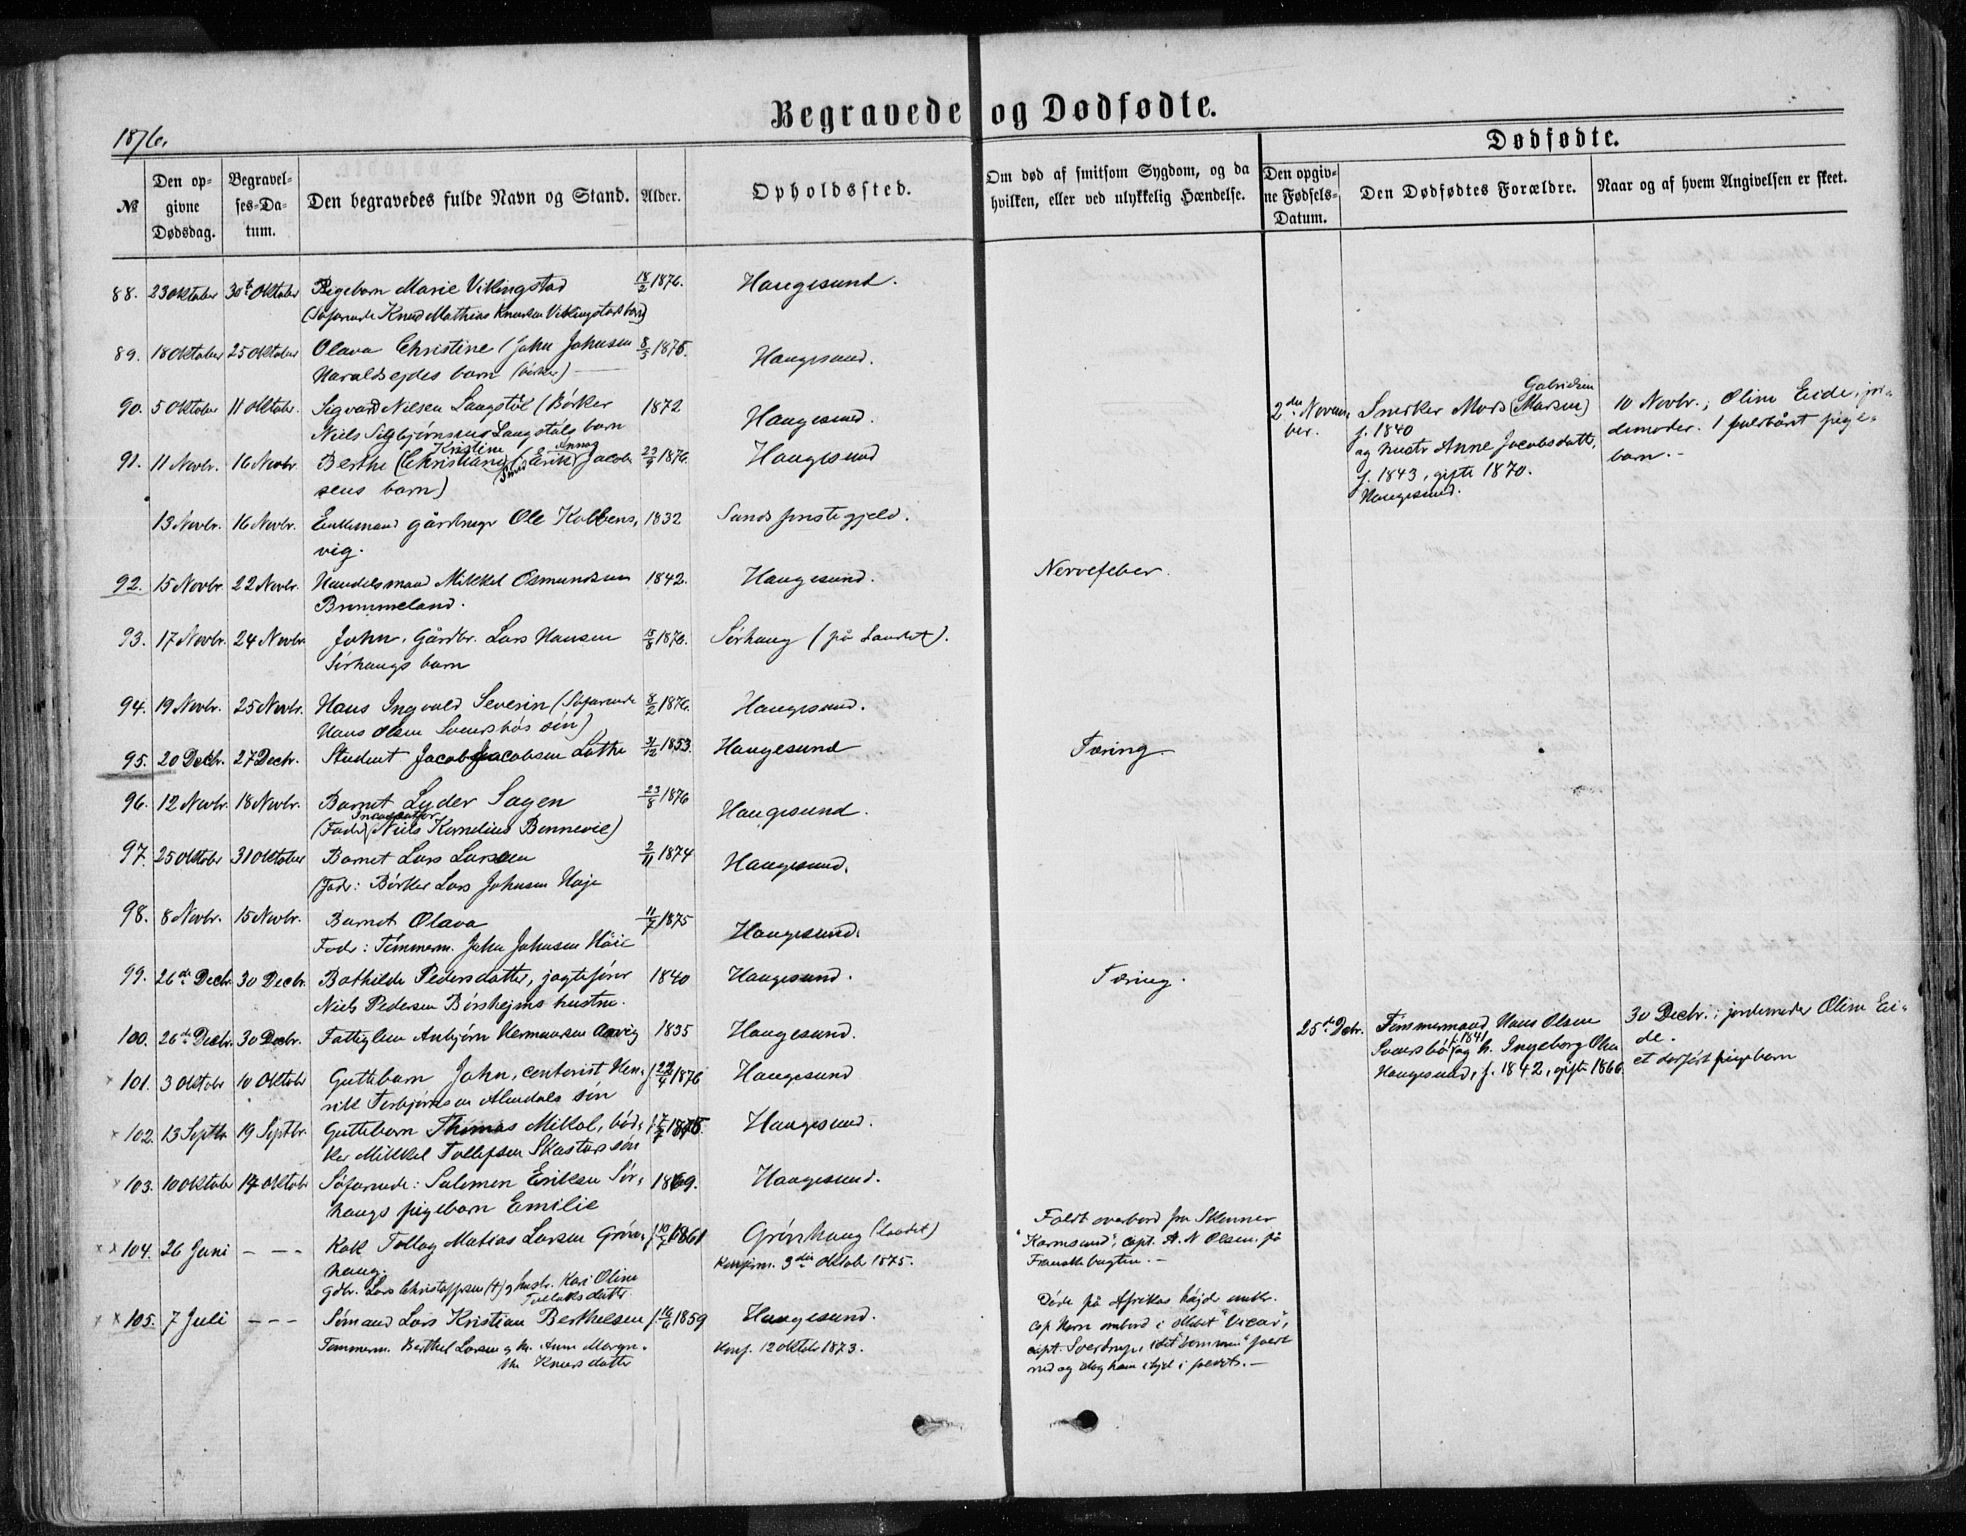 Begravede og Dødfødte.
1876.
Dødfødte.
№
Den opgivne Dødsdag.
Begravelses-Datum.
Den begravedes fulde Navn og Stand.
Alder.
Opholdssted.
Om død af smitsom Sygdom, og da hvilken, eller ved ulykkelig Hændelse.
Den opgivne Fødsels-Datum.
Den Dødfødtes Forældre.
Naar og af hvem Angivelsen er skeet.
88. 23 Oktober 30te Oktober Pigebarn Marie Vikingstad 18/2 1876. Haugesund.
(Søfarende Knud Mathias Knudsen Vikingstads barn)
89. 18 Oktober 25 Oktober Olava Christine (John Johnsen 8/5 1875. Haugesund.
Haraldsejdes barn
90. 5 Oktober 11 Oktober. Sigvard Nilsen Langstöl (Børker 1872 Haugesund.
Niels Langstöls barn
2den November. Snerker Mons Gabrielsen (Monsen)
f. 1840
og hustr Anne Jacobsdatt.
f. 1843, gift 1870.
Haugesund.
10 Novbr.; Oline Eide, jordemoder. 1 pigebarn.
91. 11 Novbr. 16 Novbr. Berthe Kristine (Christiane) (Smed Erik Jacobsens barn) 23/9 1876. Haugesund
13 Novbr. 16 Novbr. Enkemand gårdbruger Ole Kolbens, 1832 Sands præstegjeld.
vig.
92. 15 Novbr. 22 Novbr. Handelsmand Mikkel Osmundsen 1842. Haugesund. Nervefeber.
Brummeland.
93. 17 Novbr. 24 Novbr. John, Gårdbr. Lars Hansen 15/8 1876. Sørhaug (på Landet).
Sørhaugs barn
94. 19 Novbr. 25 Novbr. Hans Ingvald Severin (Søfarende 8/2 1876. Haugesund.
Hans Olsen Sveersbøs søn)
95. 20 Decbr. 27 Decbr. Student Jacob Jacobsen Lothe 31/12 1853. Haugesund Tæring.
96. 12 Novbr. 18 Novbr. Barnet Lyder Sagen 23/8 1876 Haugesund.
(Fader Niels Kornelius Bonnevie)
97. 25 Oktober 31 Oktober Barnet Lars Larsen 2/11 1874 Haugesund.
(Fader: Børker Lars Johnsen Høje
98. 8 Novbr. 15 Novbr. Barnet Olava 11/7 1875 Haugesund.
Fader: Tömmerm. John Johnsen Höie
99. 26de Decbr. 30 Decbr. Bothilde Pedersdatter, jagtefører 1840 Haugesund. Tæring.
Niels Pedersen Børshejms hustru.
100. 26de Decbr. 30 Decbr. Fattiglem Anbjørn Hermansen Aavig 1835 Haugesund.
25de Decbr. Tømmermand Hans Olsen
Sveersbø f. 1841 og h. Ingeborg Olsen
Haugesund, f. 1842, gift 1866
30 Decbr.; jordemoder Oline Eide.
et dødfødt pigebarn
101. 3 Oktobr 10 Oktobr Guttebarn John, contorist Hen- 22/4 1876 Haugesund
rik Torbjørnsen Almdals søn
102. 13 Septbr. 19 Septbr. Guttebarn Thomas Mikal, bød- 17/7 1875. Haugesund.
ker Mikkel Tollefsen Skastas søn
103. 10 Oktober 17 Oktobr Søfarende: Salomon Eriksen Sør- 1869. Haugesund.
haugs pigebarn Emilie
104. 26 Juni – – – Kok Tollag Matias Larsen Grøn- 10/7 1861 Grønhaug (Landet)
haug. Konfirm. 3die Oktobr 1875.
gdbr. Lars Christophersen (+) g hustr. Kari Oline
Tollaksdatter
Faldt overbord fra Skonner
"Karmsund", capt. A. N Olsen, på
105. 7 Juli – – – Sømand Lars Kristian Berthelsen 16/6 1859 Haugesund.
Tømmerm. Berthel Larsen g h. Anne Margre- Konf. 12 Oktobr 1873.
the Knudsdatter
Døde på Afrikas højde
Cap Horn ombord i skibet "Vicar",
capt. Sverdrup, idet bommen faldt
ned og slog ham ihjel